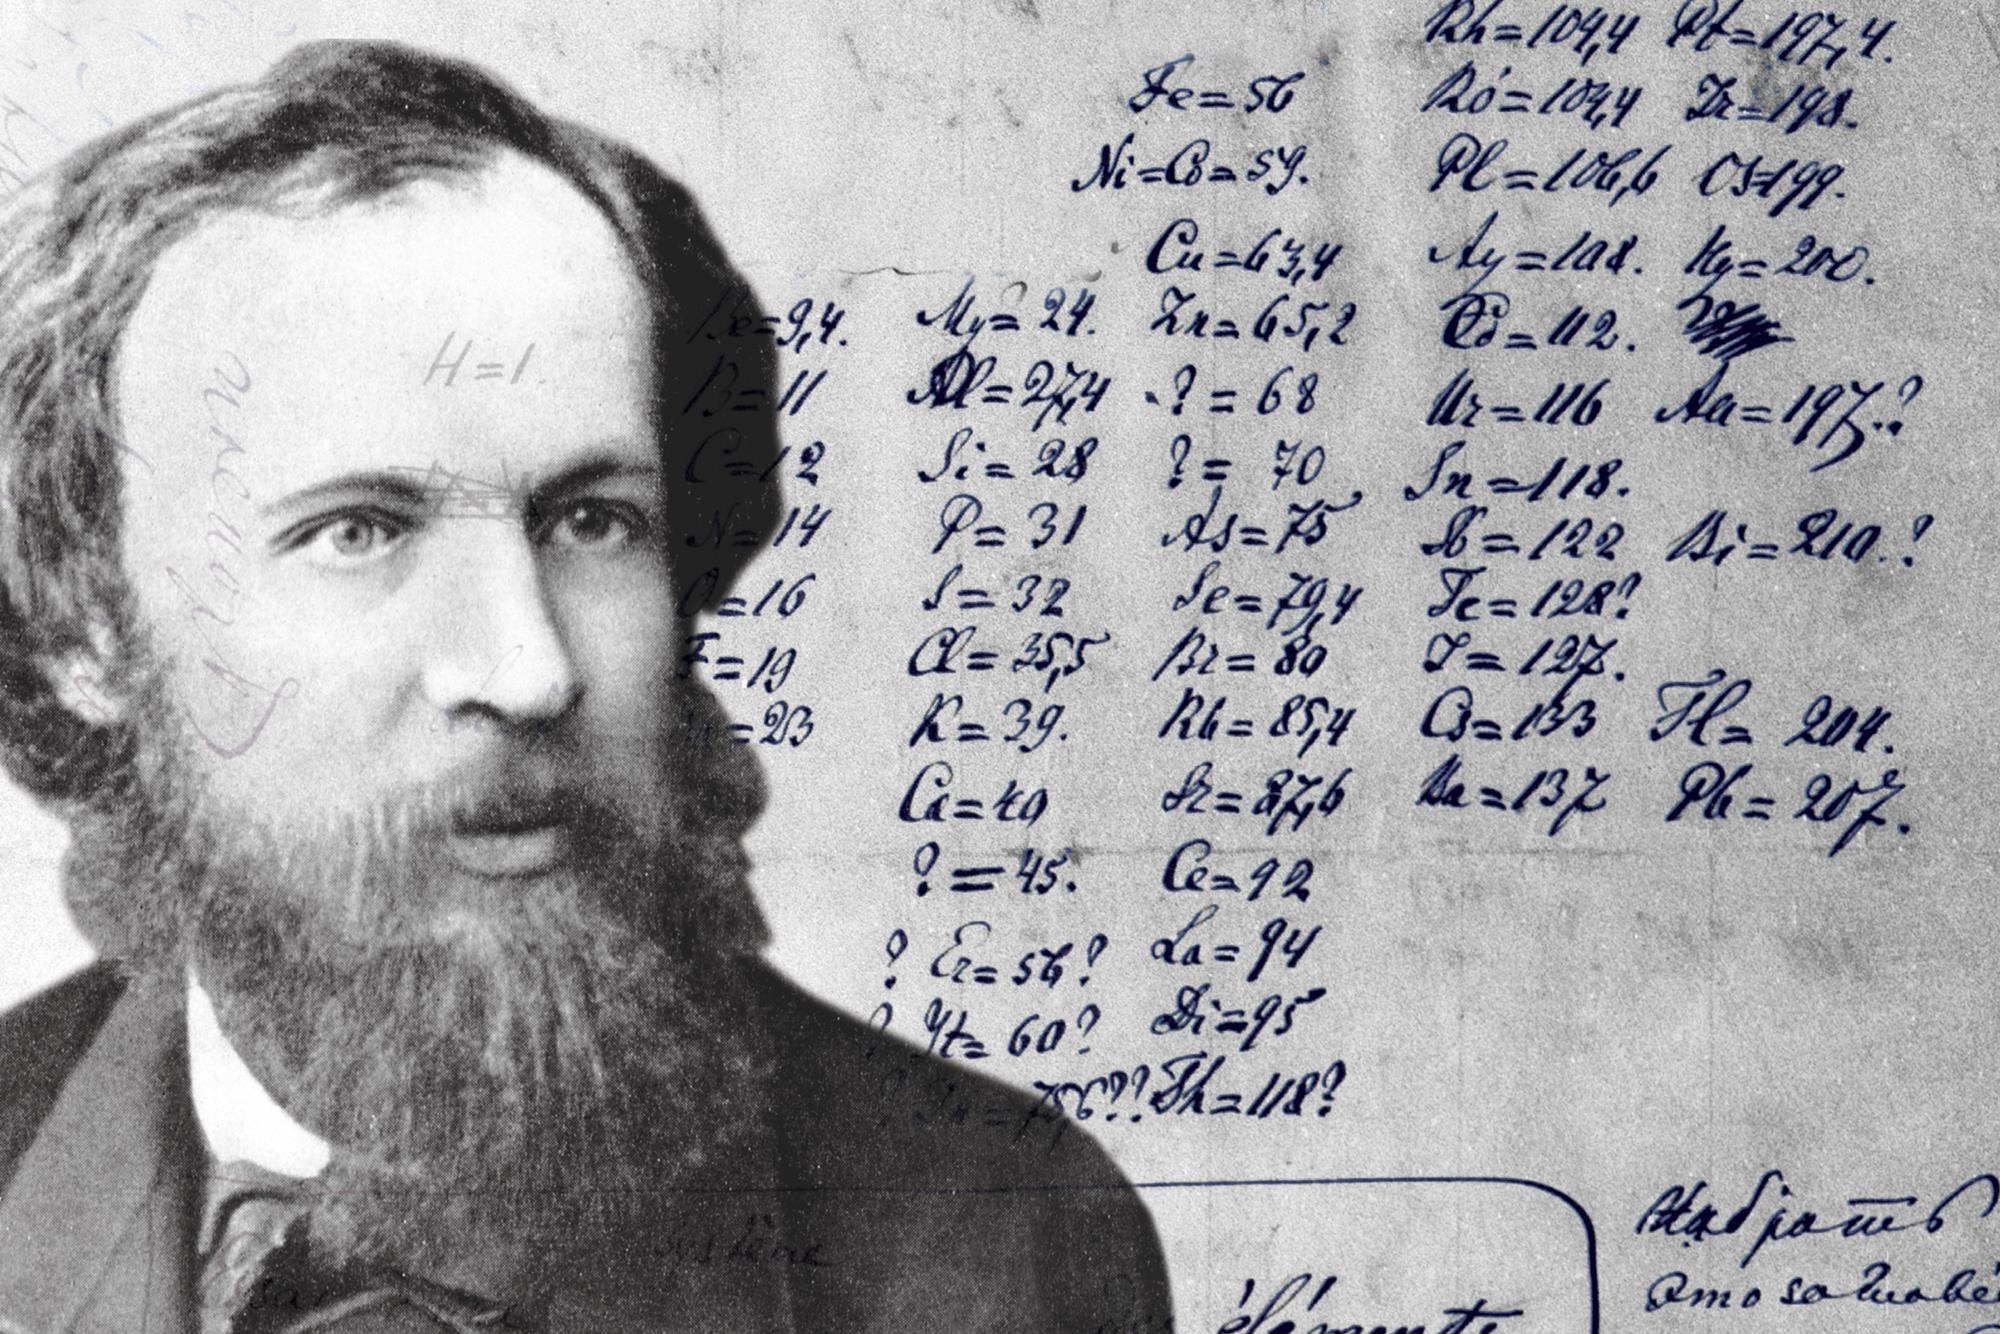 Rh=104,4 Pt=197,4.
Fe=56 Ró=104,4 Ir=198.
Ni=Co=59. Pl=106,6 Os=199.
Cu=63,4 Ag=108. Hg=200.
H=1. Be=9,4. Mg=24. Zn=65,2 Cd=112.
B=11 Al=27,4 ?=68 Ur=116 Au=197.?
C=12 Si=28 ?=70 Sn=118.
N=14 P=31 As=75 Sb=122 Bi=210.?
O=16 S=32 Se=79,4 Te=128?
F=19 Cl=35,5 Br=80 J=127.
=23 K=39. Rb=85,4 Cs=133 Tl=204.
Ca=40 Sr=87,6 Ba=137 Pb=207.
?=45. Ce=92
? Er=56? La=94
? Yt=60? Di=95
? In=75,6?? Th=118?
système
éléments